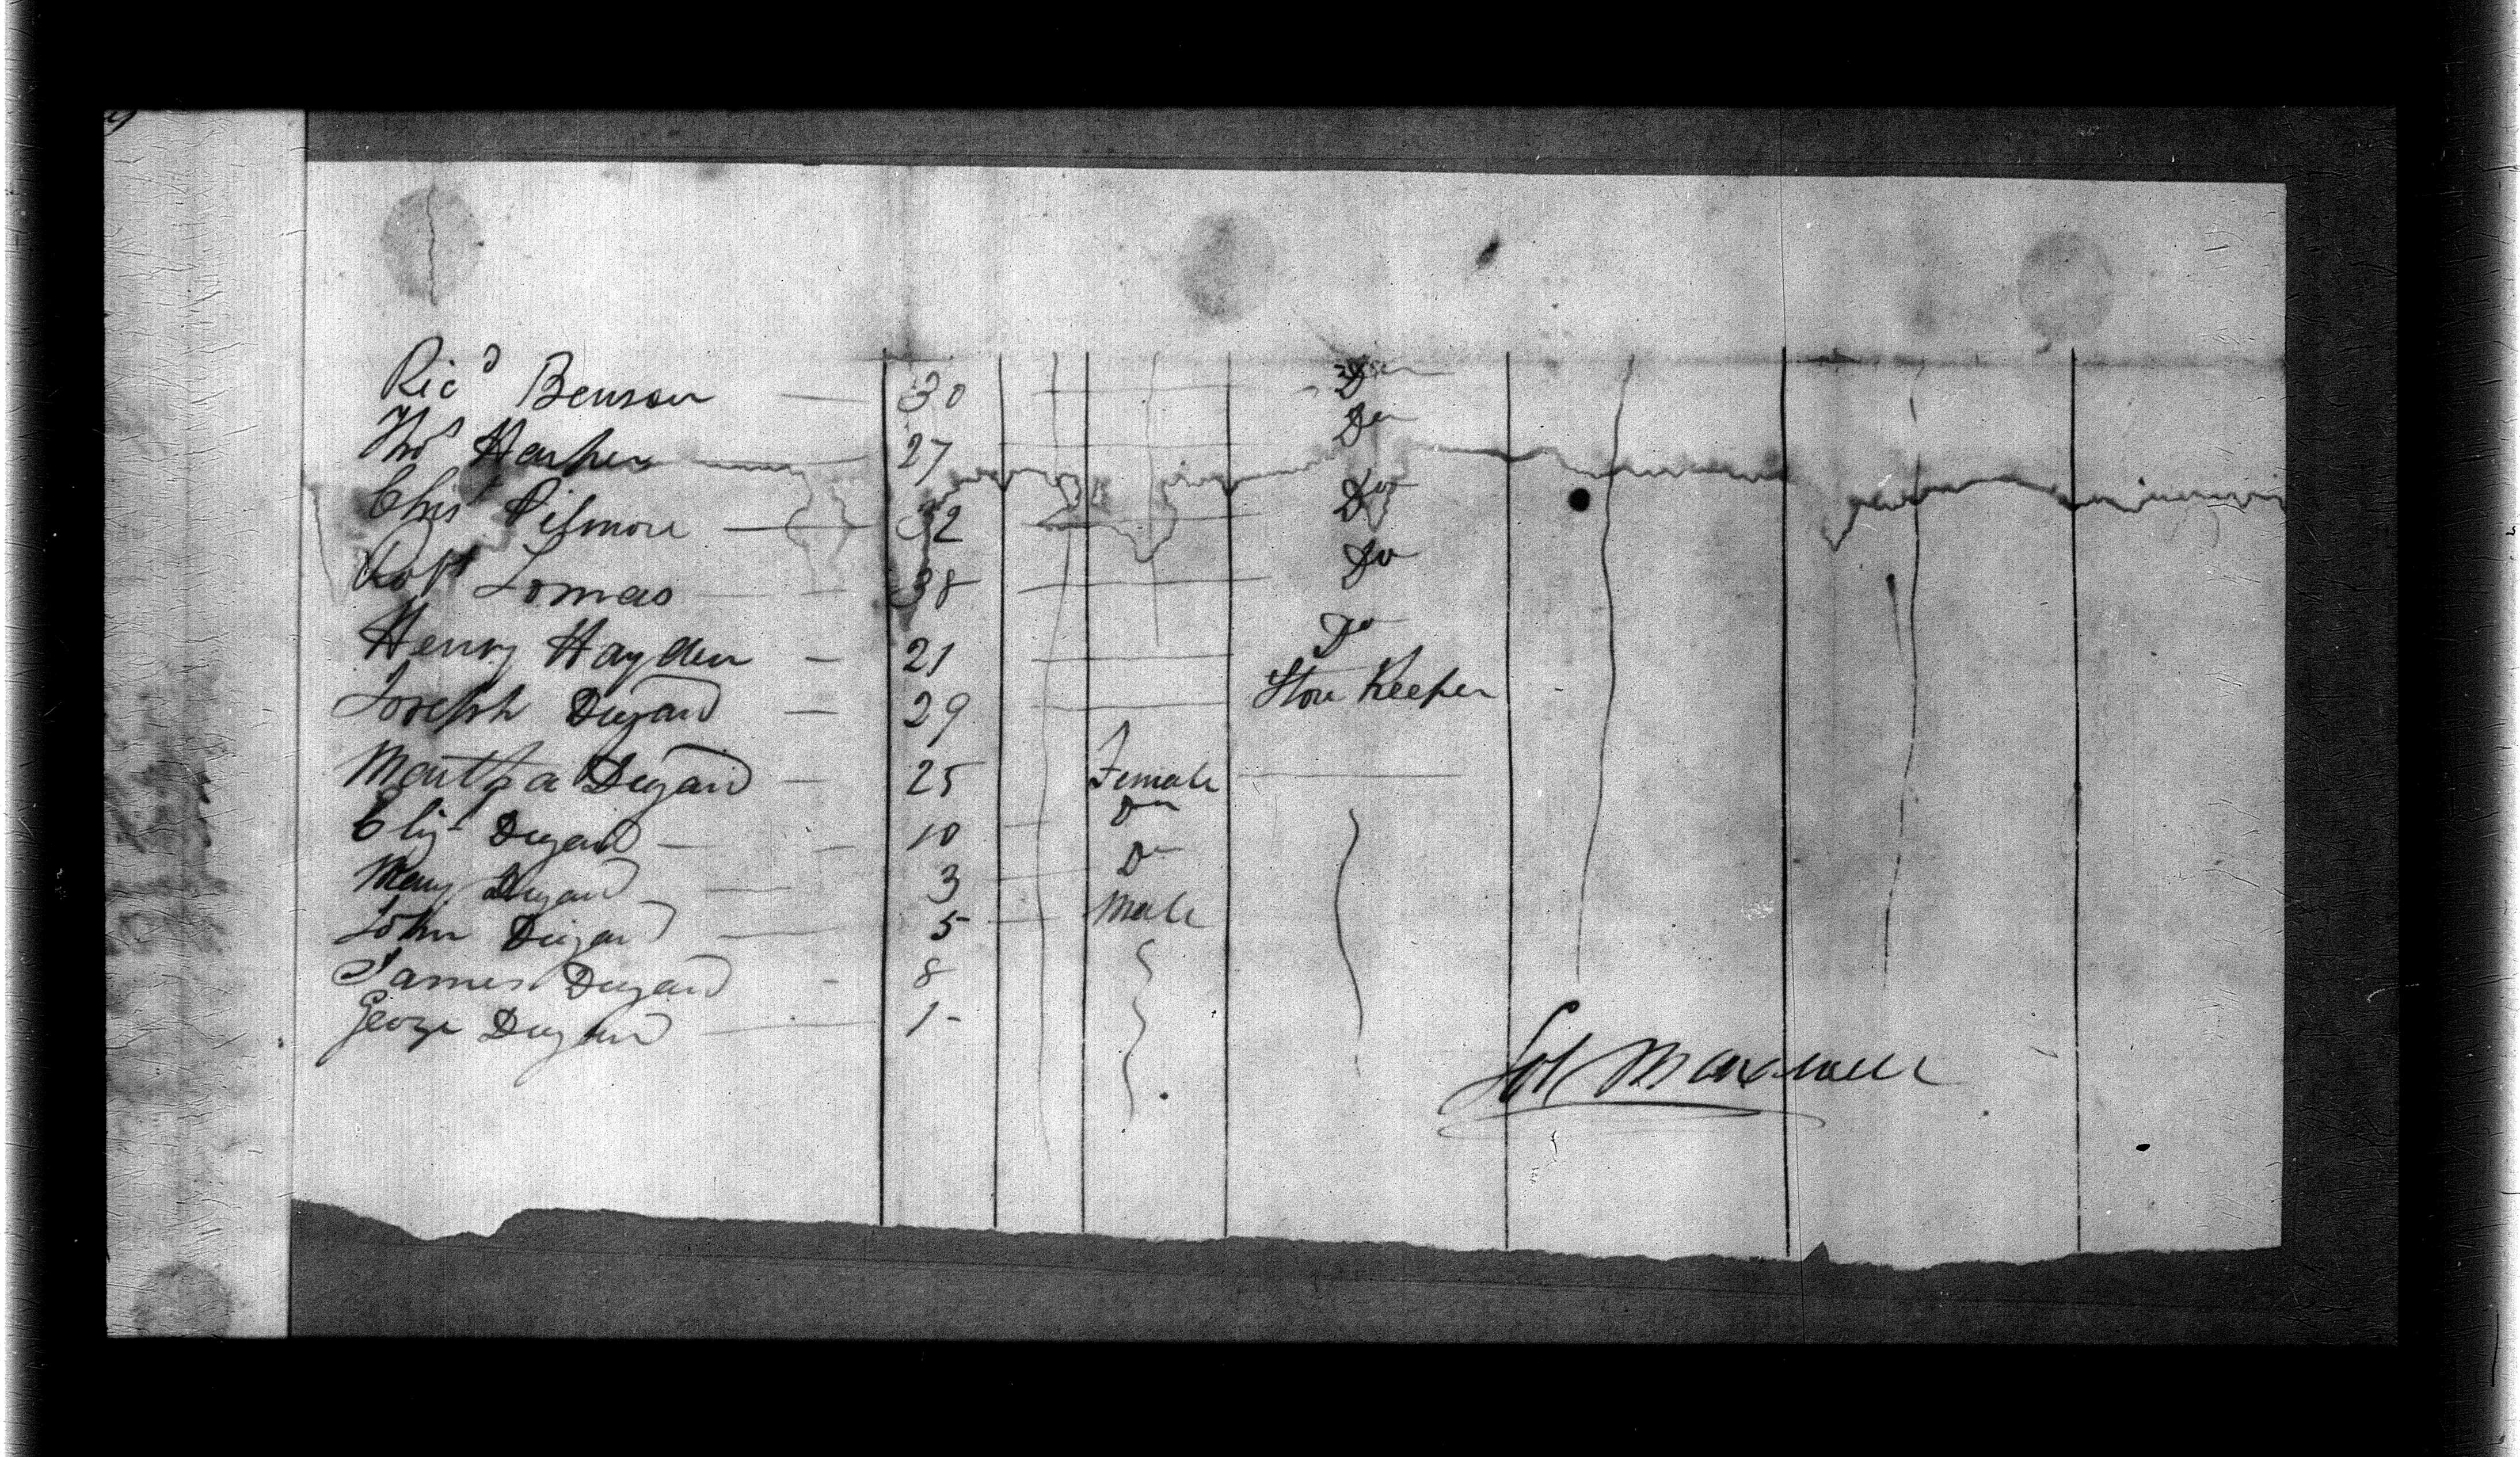 Ricd Benson — 30 Do
Thos Harper 27 Do
Chrs Pilmore — 32 Do
Robt Lomas 38 Do
Henry Hayden — 21 Do
Joseph Dugard — 29 Store Keeper
Martha Dugard — 25 Female
Eliz Dugard — 10 Do
Mary Dugard — 3 Do
John Dugard — 5 Male
James Dugard - 8
George Dugard — 1-
Maxwell